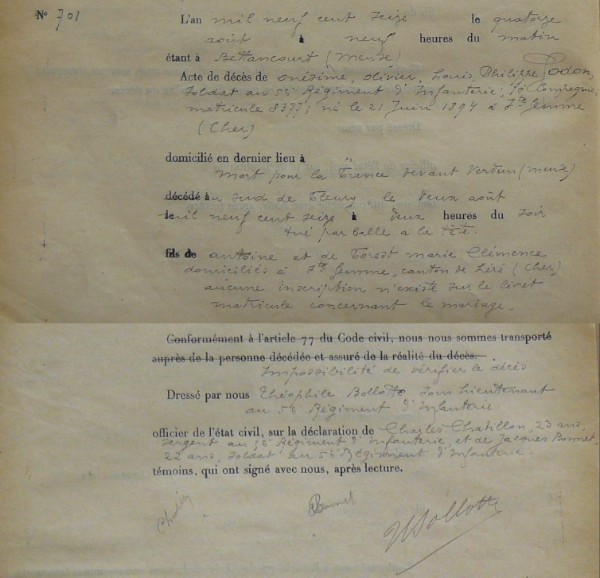 Nº 701
L'an mil neuf cent seize le quatorze
août à neuf heures du matin
étant à Bettancourt (Meuse)
Acte de décès de Onésime, Olivier, Louis Philippe Godon,
soldat au 5e Régiment d'Infanterie, Compagnie
matricule 8377, né le 21 Juin 1894 à Ste Gemme
(Cher)
domicilié en dernier lieu à
Mort pour la France devant Verdun (Meuse)
décédé à au sud de Fleury le deux août
le mil neuf cent seize à deux heures du soir
tué par balle a la tête.
fils de antoine et de Forest marie Clémence
domiciliés à Ste Gemme, canton de Léré (Cher)
aucune inscription n'existe sur le livret
matricule concernant le mariage.
Conformément à l'article 77 du Code civil, nous nous sommes transporté
auprès de la personne décédée et assuré de la réalité du décès.
Impossibilité de vérifier le décès
Dressé par nous Théophile Bollotte Sous Lieutenant
au 5e Régiment d'Infanterie
officier de l'état civil, sur la déclaration de Charles Chatillon, 23 ans,
sergent au 5e Régiment d'Infanterie, et de Jacques Bonnet,
22 ans, soldat au 5e Régiment d'Infanterie.
témoins, qui ont signé avec nous, après lecture.
Bonnet
Bollotte